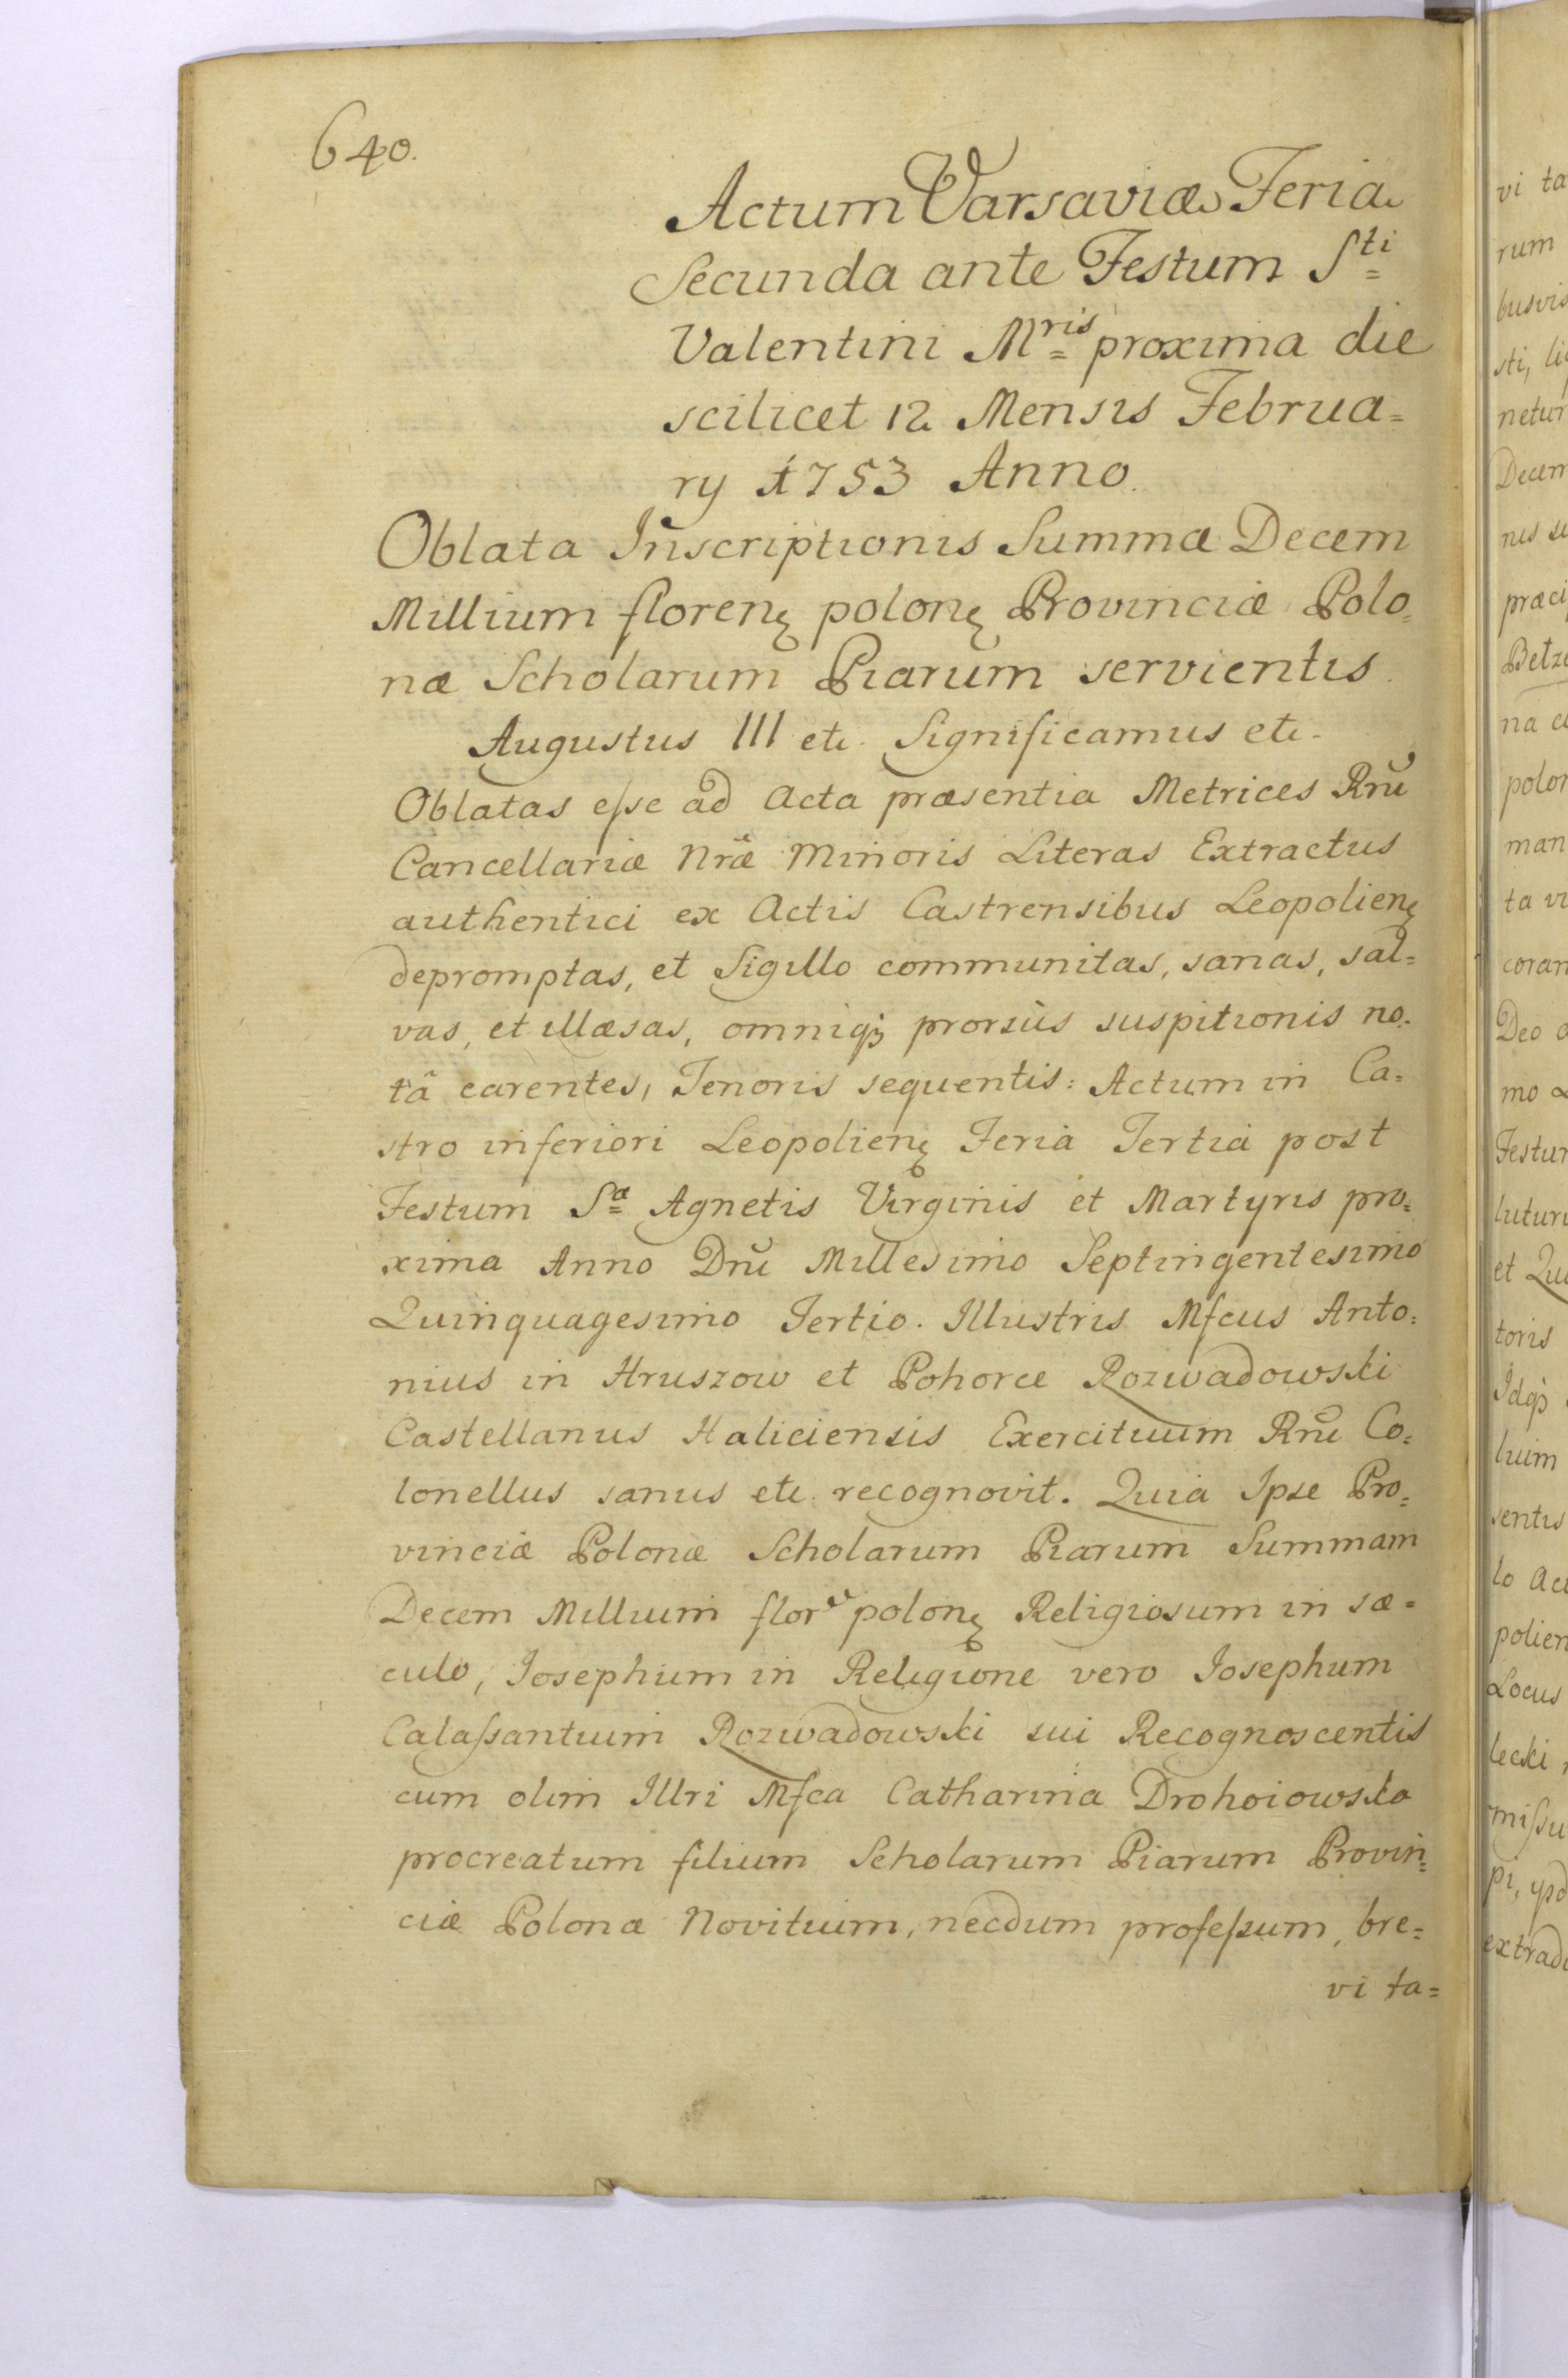 640.
Actum Varsaviæ Feria
Secunda ante Festum Sti
Valentini Mris proxima die
scilicet 12 Mensis Februa=
ry 1753 Anno.
Oblata Inscriptionis Summæ Decem
Millium florenę polonę Provinciæ Polo=
næ Scholarum Piarum servientis.
Augustus III etc. Significamus etc.
Oblatas eſse ad Acta præsentia Metrices Rnũ
Cancellariæ Nræ̃ Minoris Literas Extractus
authentici ex Actis Castrensibus Leopolienę
depromptas, et Sigillo communitas, sanas, sal=
vas, et illæsas, omniqꝫ prorsùs suspitionis no=
tâ carentes, Tenoris sequentis: Actum in Ca=
stro inferiori Leopolienę Feria Tertia post
Festum Sæ Agnetis Virginis et Martyris pro=
xima Anno Dnĩ Millesimo Septingentesimo
Quinquagesimo Tertio. Illustris Mfcus Anto=
nius in Hruszow et Pohorce Rozwadowski
Castellanus Haliciensis Exercituum Rnũ Co=
lonellus sanus etc. recognovit. Quia Ipse Pro=
vinciæ Polonæ Scholarum Piarum Summam
Decem Millium flor. polonę Religiosum in sæ=
culo, Josephum in Religione vero Josephum
Calaſsantium Rozwadowski sui Recognoscentis
cum olim Illri Mfca Catharina Drohoiowska
procreatum filium Scholarum Piarum Provin=
ciæ Polonæ Novitium, necdum profeſsum, bre=
vi ta=
vi ta
rum
busvis
sti, li
netur
Decem
nis
præci
na
polon
man
ta
coram
Deo
mo
Festum
et
toris
Idqꝫ
luim
sentis
lo
polien
Locus
lecki
miſsu
extradi